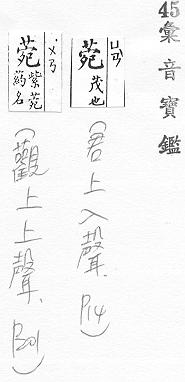 45彙音寶鑑
菀 茂也
(君上入聲、P14)
菀 紫菀葯名
(觀上上聲、P201)